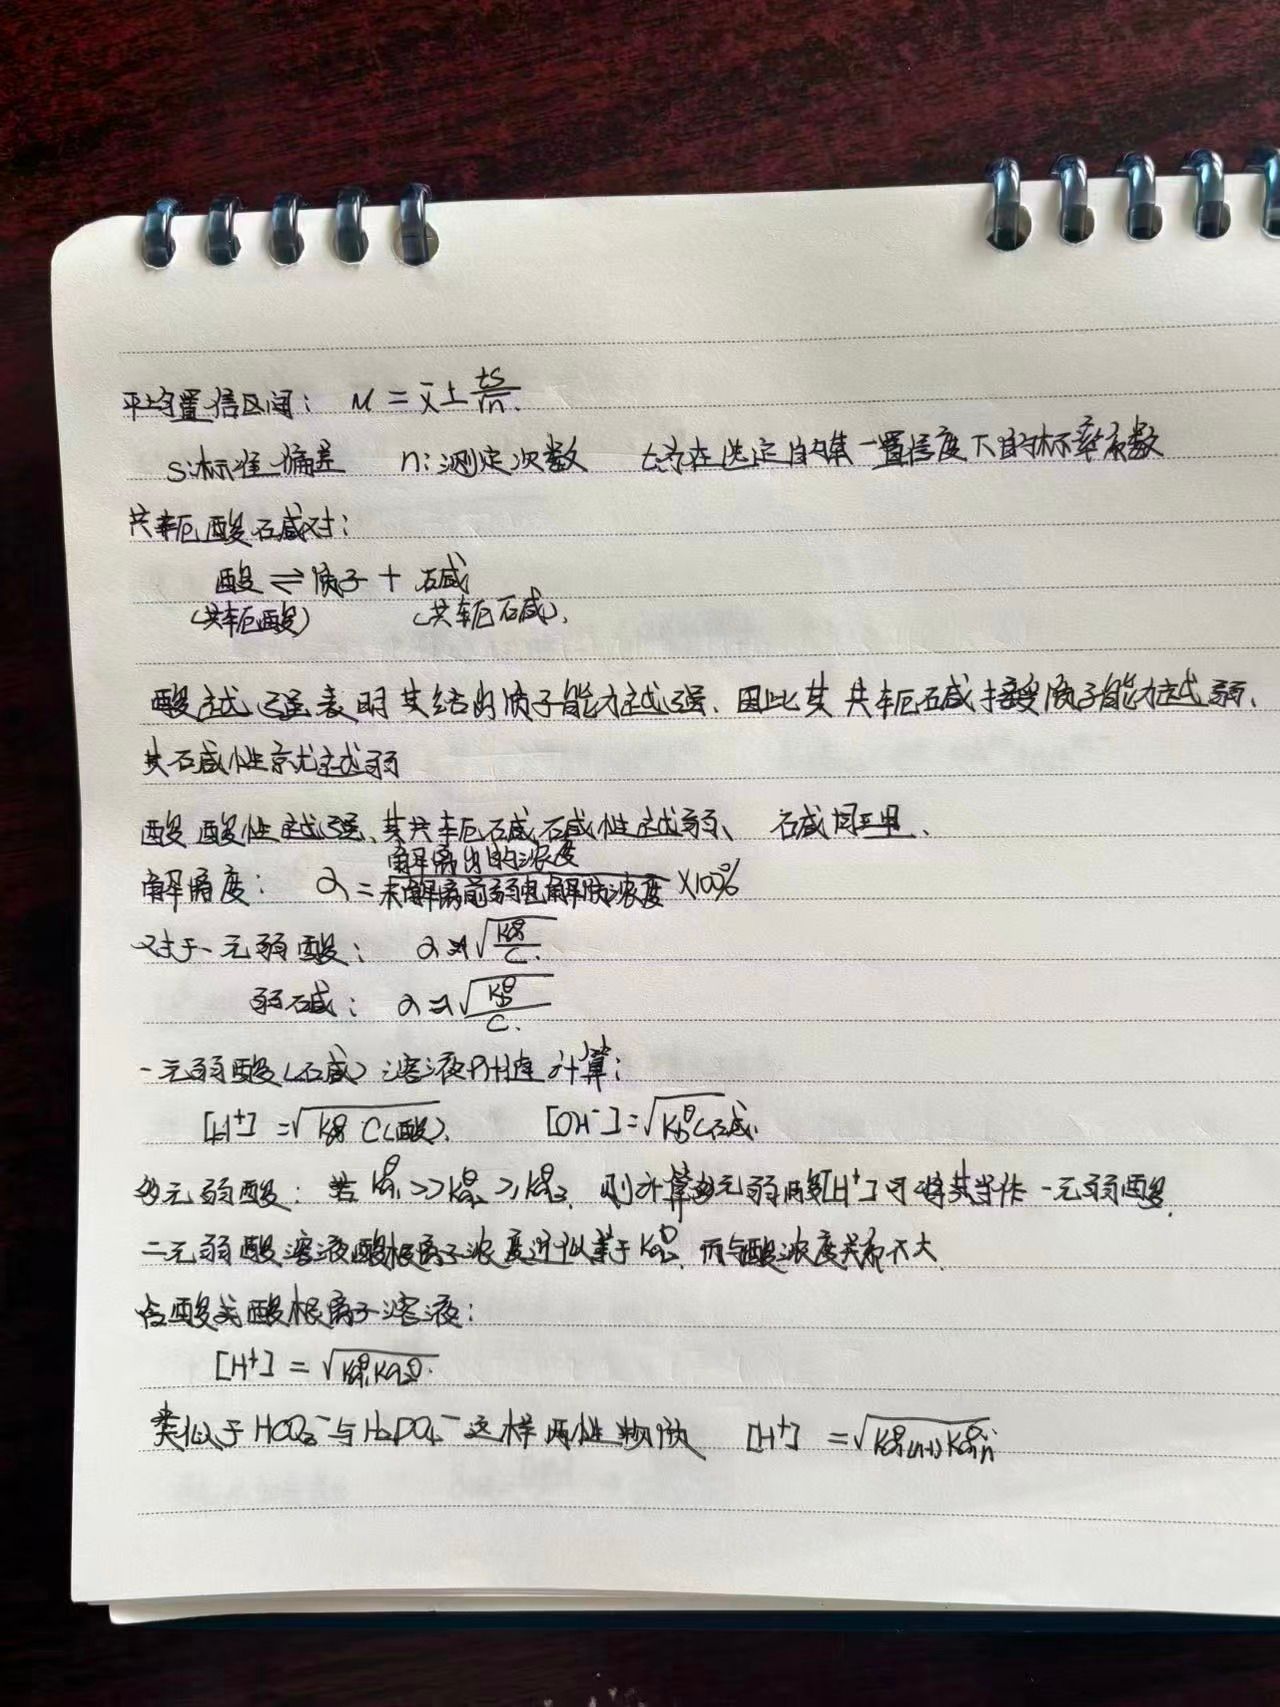 平均置信区间: μ = x̄ ± ts/√n.
S:标准偏差 n:测定次数 t:为在选定的某一置信度下的概率系数
共轭酸碱对:
酸 ⇌ 质子 + 碱
(共轭酸) (共轭碱).
酸越强表明其给出质子能力越强、因此其共轭碱接受质子能力越弱、
其碱性就越弱
酸酸性越强、其共轭碱碱性越弱、 碱同理、
解离度: α = 解离出的浓度/未解离前弱电解质浓度 ×100%
对于一元弱酸: α≈√(Kaθ/C).
弱碱: α≈√(Kbθ/C).
一元弱酸(碱)溶液PH值计算:
[H⁺] =√(Kaθ C(酸)). [OH⁻]=√(Kbθ C碱.
多元弱酸: 若 Kaθ₁>>Kaθ₂>>Kaθ₃, 则计算多元弱酸[H⁺]可将其当作一元弱酸.
二元弱酸溶液酸根离子浓度近似等于Kaθ₂, 而与酸浓度关系不大.
含酸式酸根离子溶液:
[H⁺] = √(Kaθ₁Kaθ₂).
类似于HCO₃⁻与H₂PO₄⁻这样两性物质 [H⁺] =√(Kaθ(n-1) Kaθn)